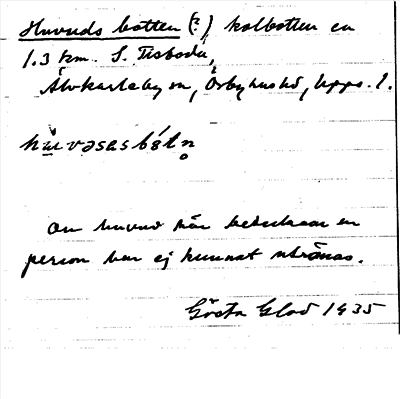 Huvuds botten (?) kolbotten ca
1.3 km. S. Tisboda,
Älvkarleby sn, Örbyhus hd, Upps. l.
hu̇vəsəsbòtn̥
Om huvud här betecknar en
person har ej kunnat utrönas.
Gösta Glad 1935